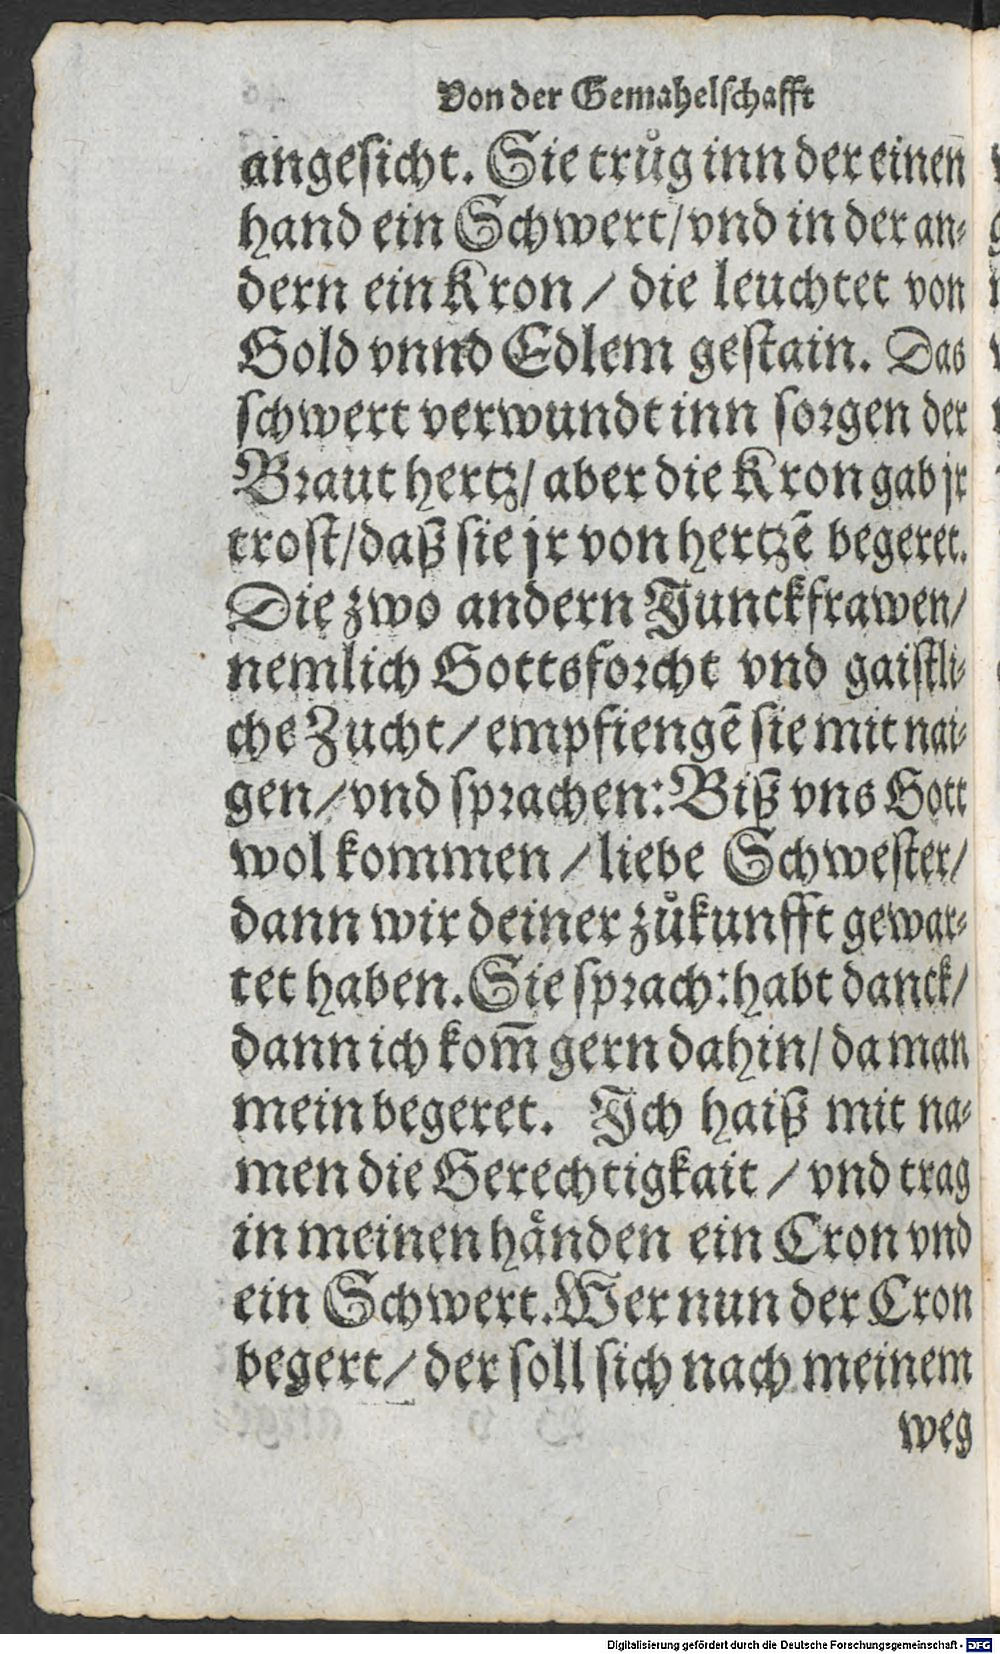 Von der Gemahelschafft
angesicht. Sie trůg inn der einen
hand ein Schwert/ vnd in der an⸗
dern ein Kron / die leuchtet von
Gold vnnd Edlem gestain. Das
schwert verwundt inn sorgen der
Braut hertz/ aber die Kron gab jr
trost/ daß sie jr von hertzē begeret.
Die zwo andern Junckfrawen/
nemlich Gottsforcht vnd gaistli⸗
che Zucht / empfiengē sie mit nai⸗
gen / vnd sprachen: Biß vns Gott
wolkommen / liebe Schwester/
dann wir deiner zůkunfft gewar⸗
tet haben. Sie sprach: habt danck/
dann ich kom̄ gern dahin/ da man
mein begeret. Ich haiß mit na⸗
men die Gerechtigkait / vnd trag
in meinen hånden ein Cron vnd
ein Schwert. Wer nun der Cron
begert / der soll sich nach meinem
weg
Digitalisierung gefördert durch die Deutsche Forschungsgemeinschaft - DFG